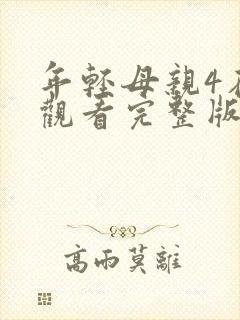 年輕母親4
觀看完整版
高雨莫離